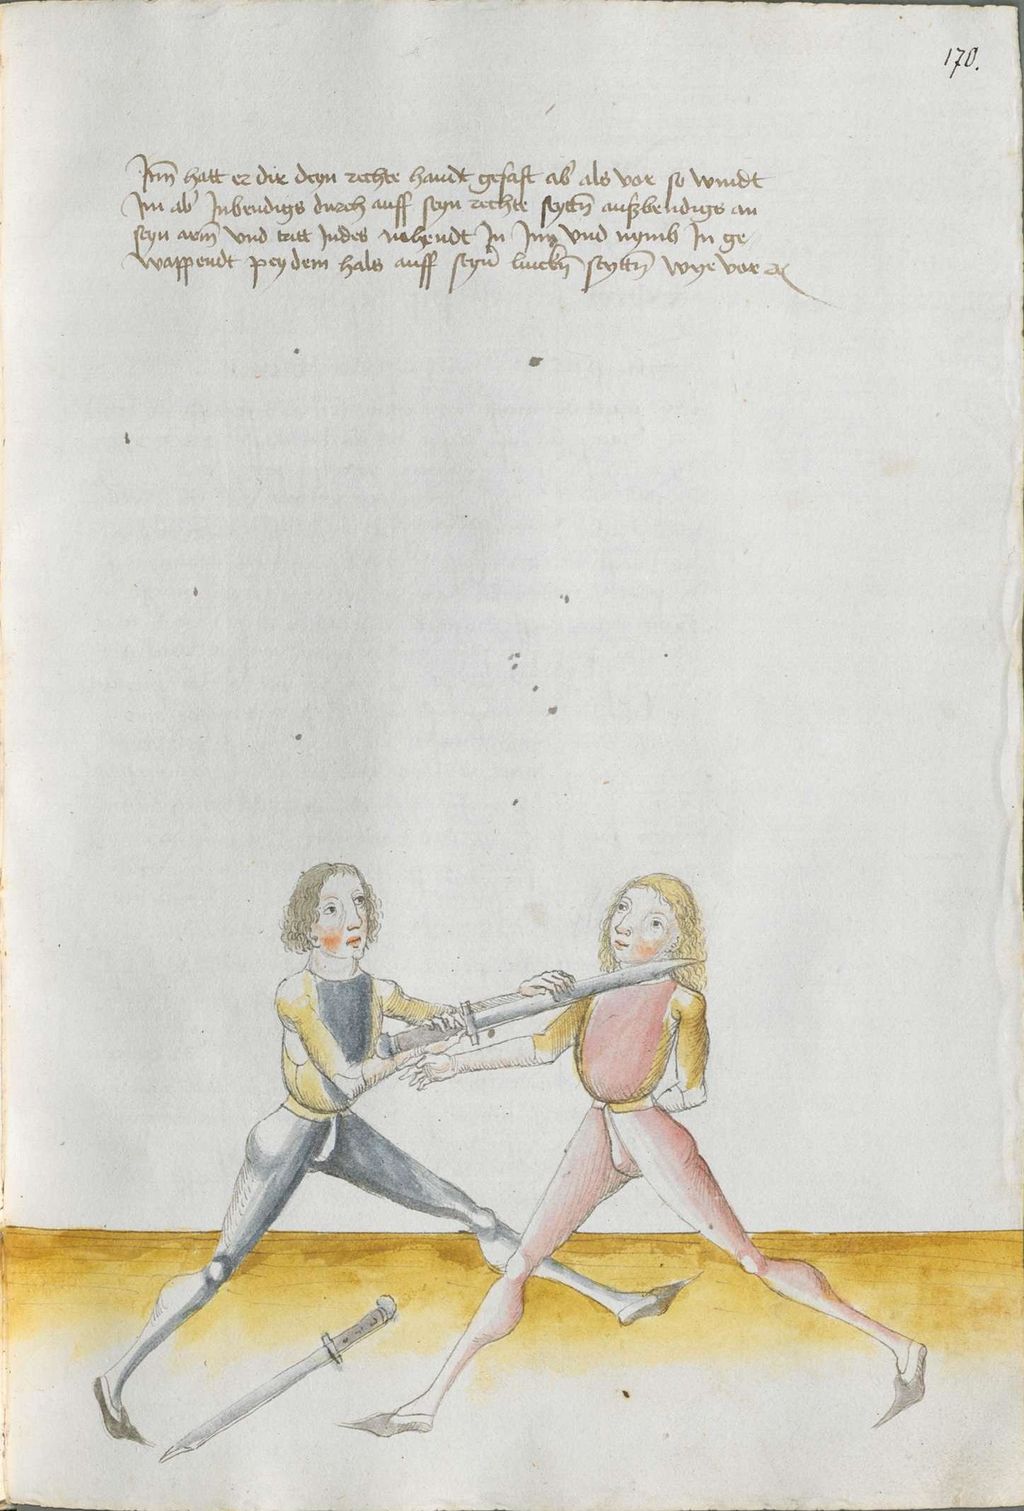 170.
Itm̄ hatt er dir deyn rechte handt gefast ab' als vor so windt
Im ab' Inbendigs durch auff seyn rechte seyttñ auszbendigs an
seyn arm̄ vnd tritt Indes nohendt In Im vnd nymb In ge
wappendt pey dem hals auff seyn̄ linckñ seyttñ wye vor